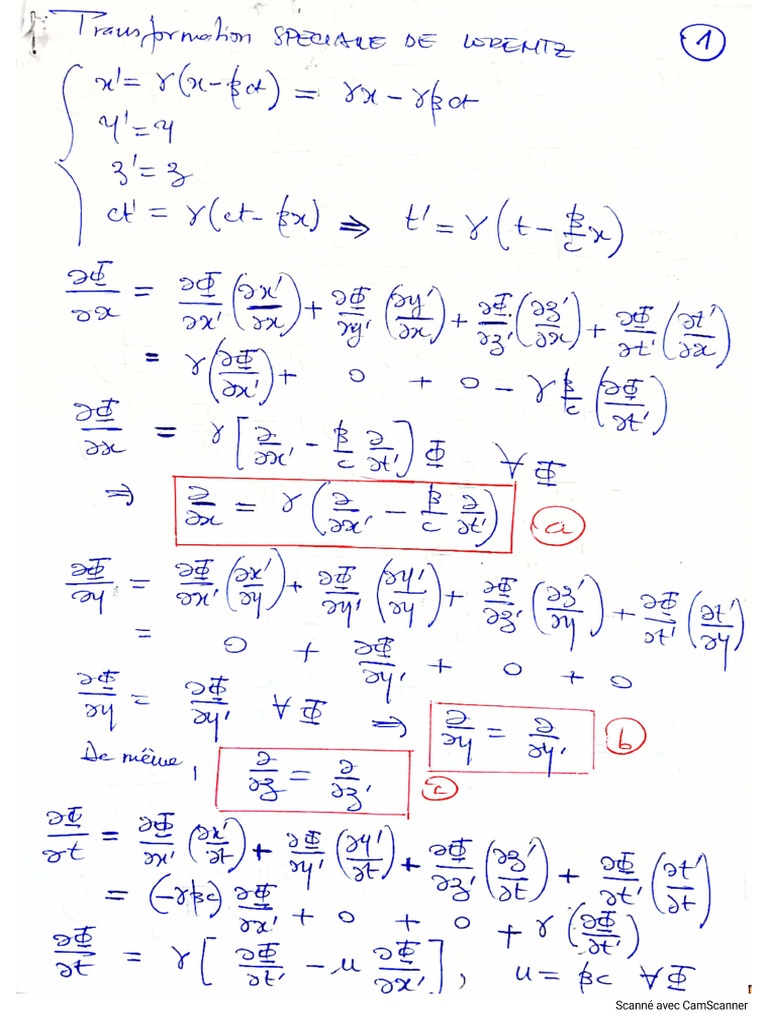 Transformation SPECIALE DE LORENTZ 1
x' = γ(x - βct) = γx - γβct
y' = y
z' = z
ct' = γ(ct - βx) ⇒ t' = γ(t - β/c x)
∂Φ/∂x = ∂Φ/∂x' (∂x'/∂x) + ∂Φ/∂y' (∂y'/∂x) + ∂Φ/∂z' (∂z'/∂x) + ∂Φ/∂t' (∂t'/∂x)
= γ(∂Φ/∂x') + 0 + 0 - γ β/c (∂Φ/∂t')
∂Φ/∂x = γ[∂/∂x' - β/c ∂/∂t']Φ ∀Φ
⇒ ∂/∂x = γ(∂/∂x' - β/c ∂/∂t') a
∂Φ/∂y = ∂Φ/∂x' (∂x'/∂y) + ∂Φ/∂y' (∂y'/∂y) + ∂Φ/∂z' (∂z'/∂y) + ∂Φ/∂t' (∂t'/∂y)
= 0 + ∂Φ/∂y' + 0 + 0
∂Φ/∂y = ∂Φ/∂y' ∀Φ ⇒ ∂/∂y = ∂/∂y' b
De même, ∂/∂z = ∂/∂z' c
∂Φ/∂t = ∂Φ/∂x' (∂x'/∂t) + ∂Φ/∂y' (∂y'/∂t) + ∂Φ/∂z' (∂z'/∂t) + ∂Φ/∂t' (∂t'/∂t)
= (-γβc) ∂Φ/∂x' + 0 + 0 + γ(∂Φ/∂t')
∂Φ/∂t = γ[∂Φ/∂t' - u ∂Φ/∂x'], u = βc ∀Φ
Scanné avec CamScanner